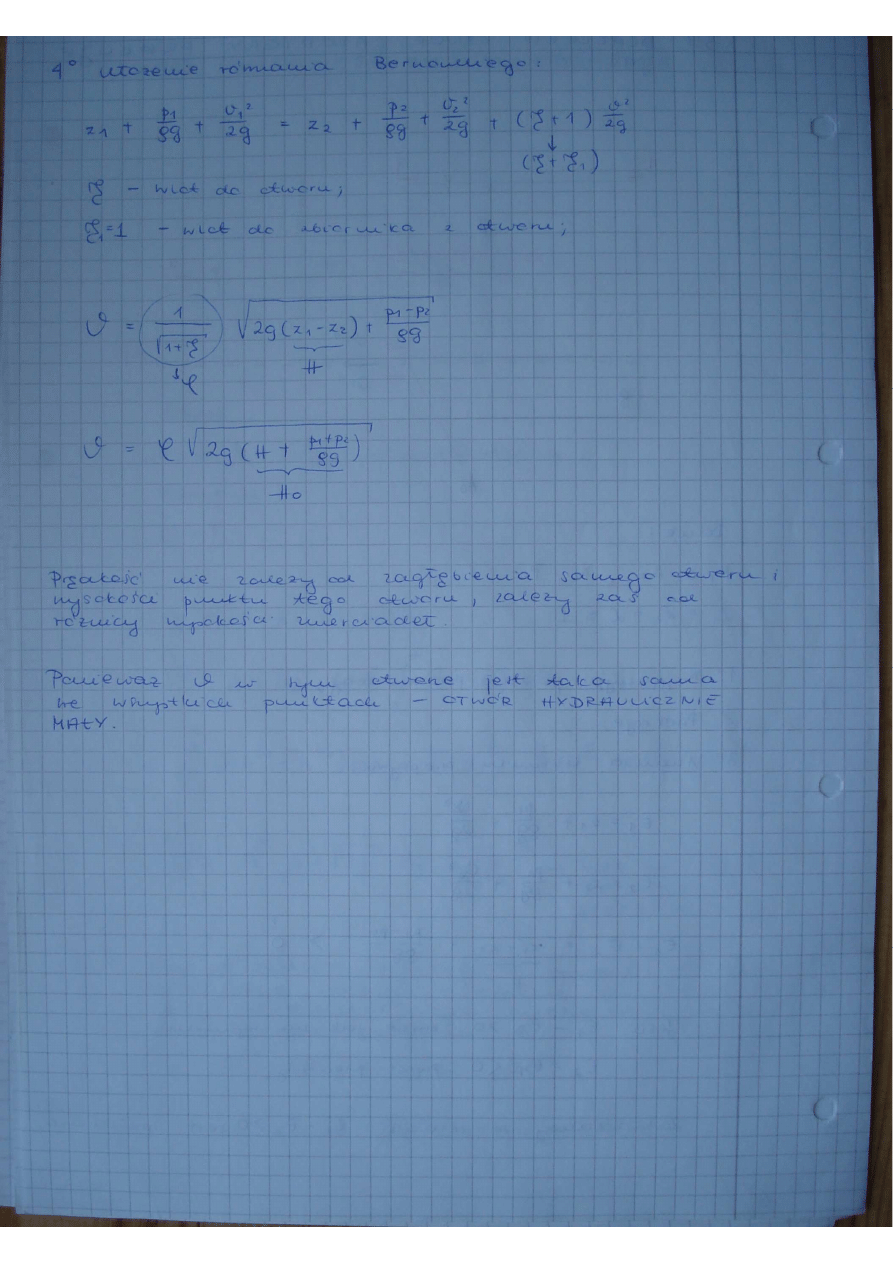 4° ułożenie równania Bernoulliego:
z₁ + p₁/ρg + υ₁²/2g = z₂ + p₂/ρg + υ₂²/2g + (ζ+1) υ²/2g
↓
(ζ+ζ₁)
ζ – wlot do otworu;
ζ₁=1 – wlot do zbiornika z otworu;
υ = 1/√(1+ζ) √(2g(z₁-z₂) + (p₁-p₂)/ρg)
↓φ H
υ = φ √(2g(H + (p₁+p₂)/ρg))
H₀
Prędkość nie zależy od zagłębienia samego otworu i
wysokości punktu tego otworu, zależy zaś od
różnicy wysokości zwierciadeł.
Ponieważ υ w tym otworze jest taka sama
we wszystkich punktach – OTWÓR HYDRAULICZNIE
MAŁY.